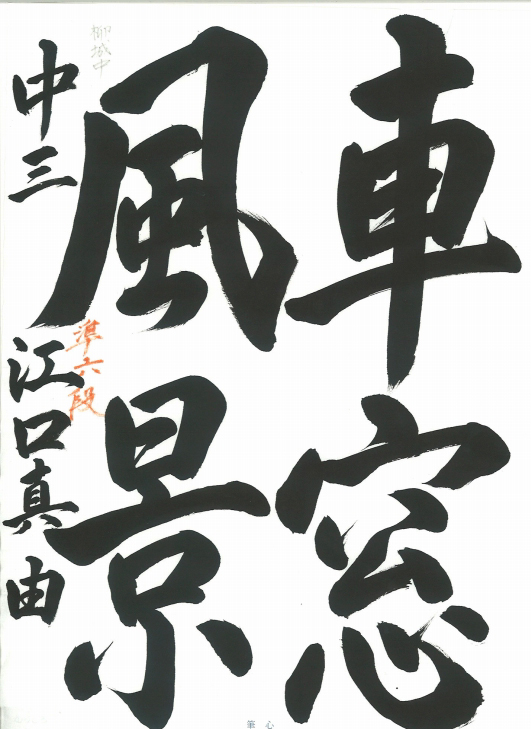 車窓
風景
中三 江口真由
準六段
柳城中
筆心